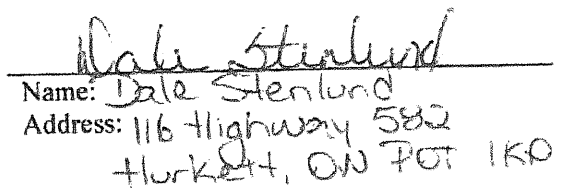 Dale Stenlund
Name: Dale Stenlund
Address: 116 Highway 582
Hurkett, ON P0T 1K0